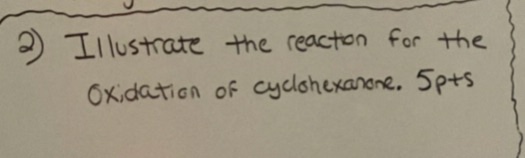 2) Illustrate the reaction for the
Oxidation of cyclohexanone. 5pts